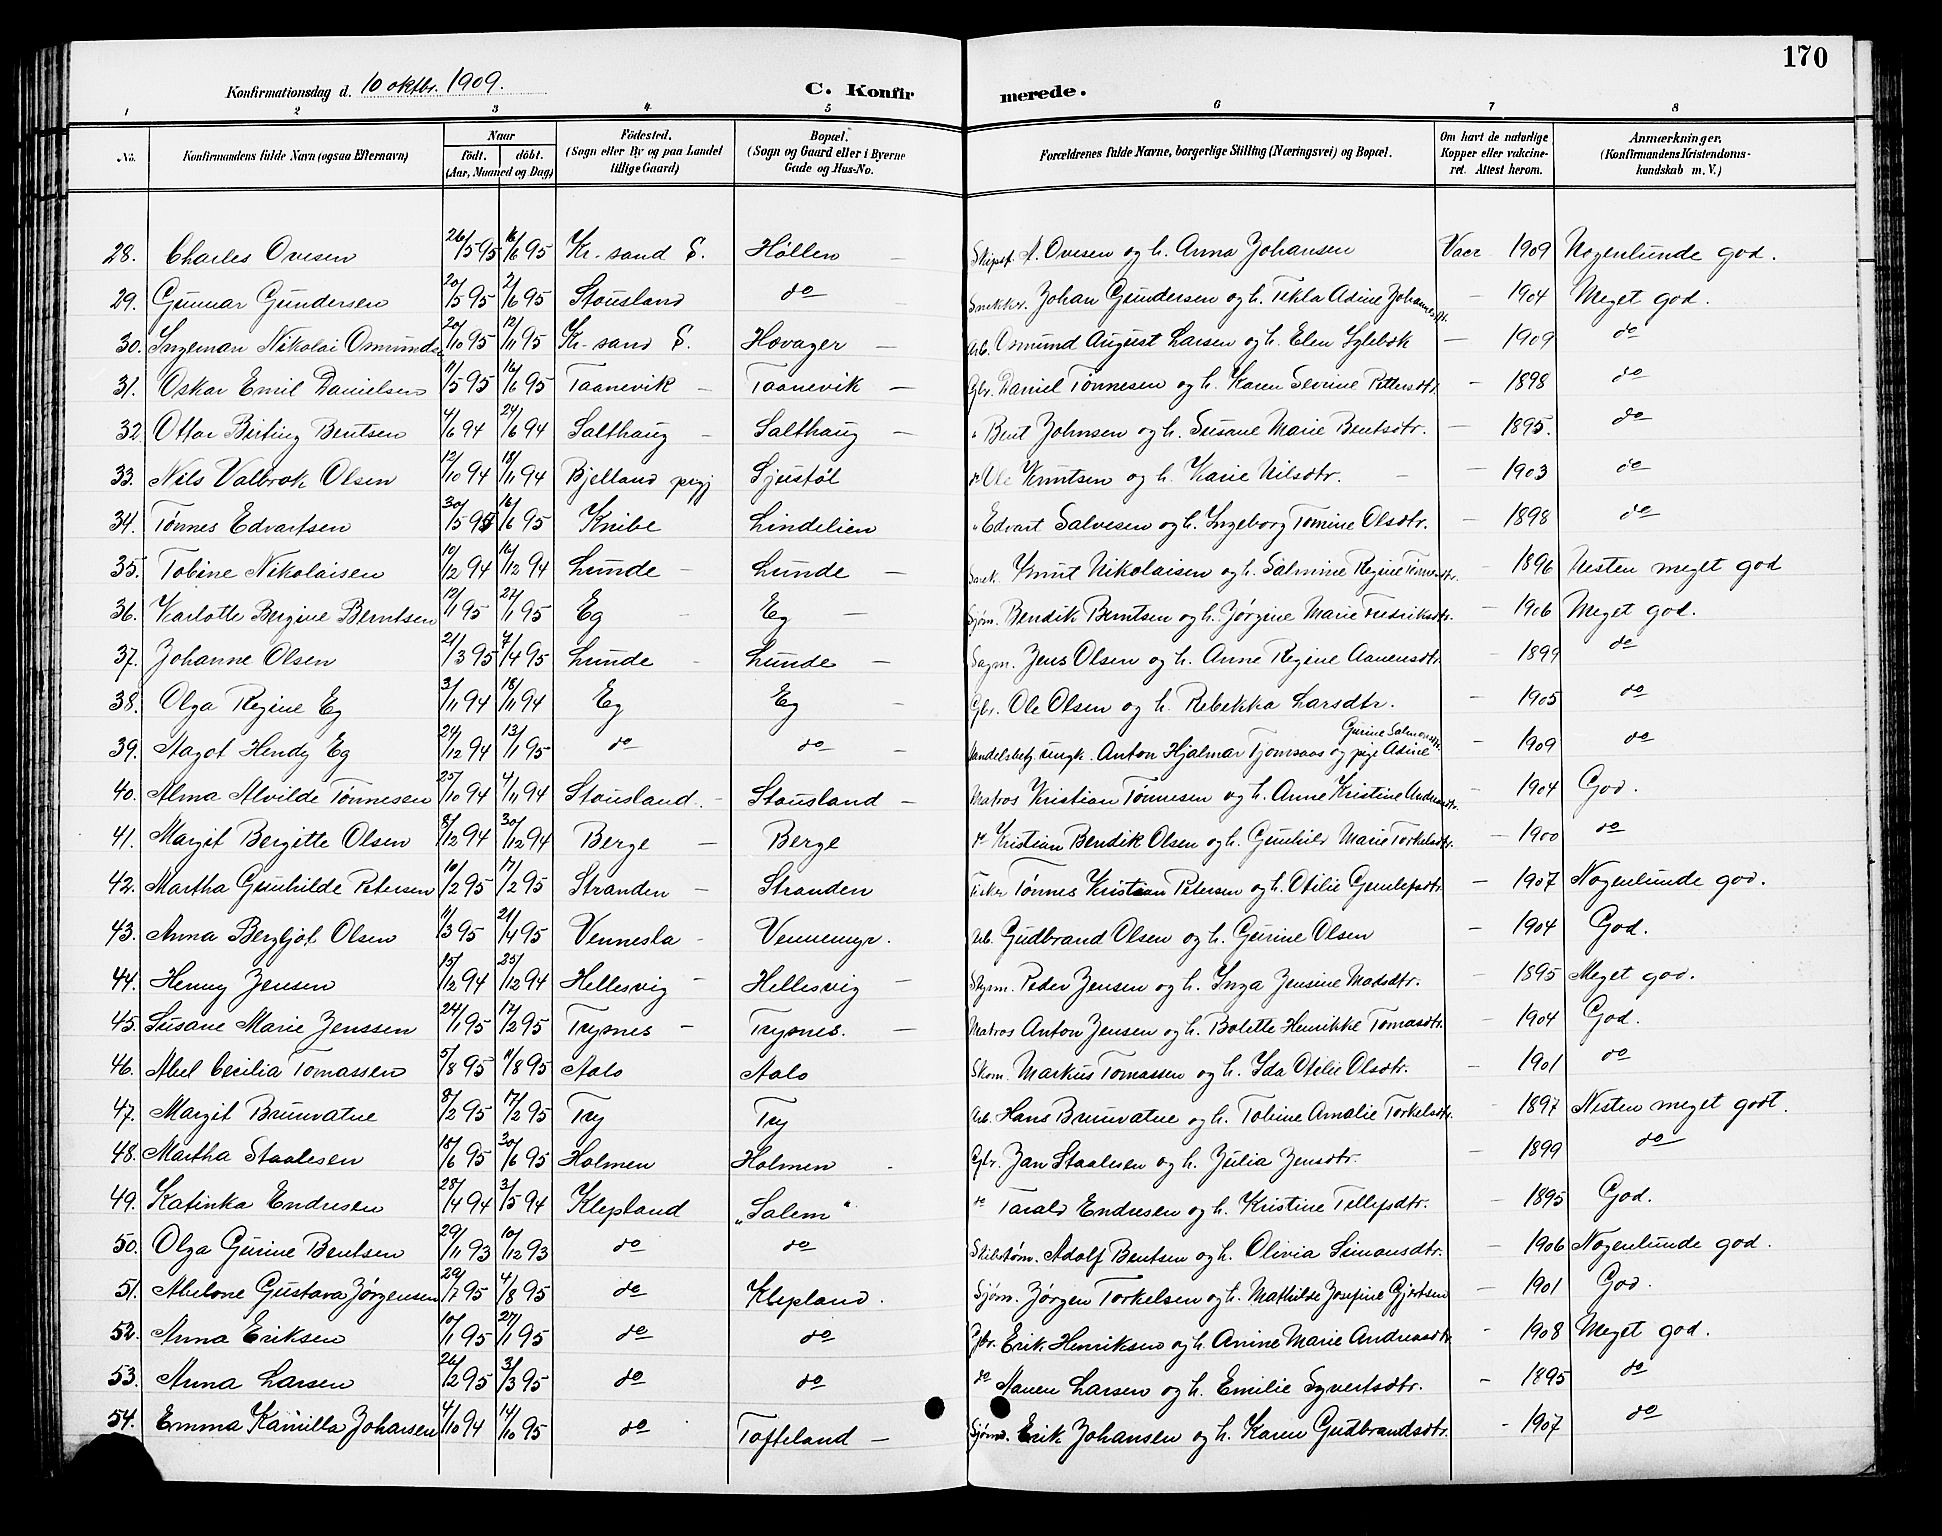 170
Konfirmationsdag d. 10 oktbr. 1909.
C. Konfirmerede.
1 2 3 4 5 6 7 8
No. Konfirmandens fulde Navn (ogsaa Efternavn) Naar født. døbt. (Aar, Maaned og Dag) Fødested. (Sogn eller By og paa Landet tillige Gaard) Bopæl. (Sogn og Gaard eller i Byerne Gade og Hus-No. Forældrenes fulde Navne, borgerlige Stilling (Næringsvei) og Bopæl. Om havt de naturlige Kopper eller vakcineret. Attest herom. Anmærkninger. (Konfirmandens Kristendomskundskab m. V.)
28. Charles Ovesen 26/5 95 16/6 95 Kr.sand S. Høllen Skipsf. A. Ovesen og h. Anna Johansen Vacc 1909 Nogenlunde god.
29. Gunnar Gundersen 20/5 95 2/6 95 Stousland do Snekker Johan Gundersen og h. Tekla Adine - 1904 Meget god.
30. Ingeman Nikolai Osmundsen 20/10 95 12/11 95 Kr.sand S. Hovager - Arb. Osmund August Larsen og h. Elen - 1909 do
31. Oskar Emil Danielsen 11/5 95 16/6 95 Taanevik - Taanevik - Gbr. Daniel Tønnesen og h. Karen Severine Pettersdtr. - 1898 do
32. Ottar Berting Bentsen 4/6 94 24/6 94 Salthaug - Salthaug - " Bent Johnsen og h. Susane Marie Bentsdtr. - 1895. do
33. Nils Valbrok Olsen 12/10 94 18/11 94 Bjelland prgj Sjustøl do Ole Knutsen og h. Karie Nilsdtr. - 1903 do
34. Tønnes Edvartsen 30/5 95 16/6 95 Knibe Lindelien " Edvart Salvesen og h. Ingeborg Tomine Olsdtr. - 1898 do
35. Tobine Nikolaisen 10/12 94 16/12 94 Lunde - Lunde - Snek. Knut Nikolaisen og h. Salmine Regine - 1896 Nesten meget god
36. Karlotte Bergine Berntsen 12/1 95 27/1 95 Eg - Eg - Sjøm. Bendik Berntsen og h. Jørgine Marie Fredriksdtr. - 1906 Meget god.
37. Johanne Olsen 21/3 95 7/4 95 Lunde - Lunde - Sagm. Jens Olsen og h. Anne Regine Aanensdtr. - 1899 do
38. Olga Regine Eg 3/11 94 18/11 94 Eg Eg - Gbr. Ole Olsen og h. Rebekka Larsdtr. - 1905 do
39. Aagot Hendy Eg 29/12 94 13/1 95 do do - Handelsbetj. ungk. Anton Hjalmar Tjomsaas og pige Adine Gurine Salmonsdtr. - 1909 do
40. Alma Alvilde Tønnesen 25/10 94 4/11 94 Stousland. - Stousland - Matros Kristian Tønnesen og h. Anne Kristine Andreasdtr. - 1904 God.
41. Margit Bergitte Olsen 8/12 94 30/12 94 Berge - Berge do Kristian Bendik Olsen og h. Gunhild Marie Torkelsdtr. - 1900 do
42. Martha Gunhilde Petersen 10/2 95 17/2 95 Stranden - Stranden Fisker Tønnes Kristian Petersen og h. Otilie Gunlefsdtr. - 1907 Nogenlunde god.
43. Anna Bergljot Olsen 11/3 95 21/4 95 Vennesla - Vennemyr. Arb. Gudbrand Olsen og h. Gurine Olsen - 1904 God.
44. Henny Jensen 15/12 94 25/12 94 Hellesvig - Hellesvig - Peder Jensen og h. Inga Jensine Madsdtr. - 1895 Meget god.
45. Susane Marie Jenssen 24/1 95 17/2 95 Trysnes - Trysnes. - Matros Anton Jensen og h. Bolette Henrikke Tomasdtr. - 1904 God.
46. Abel Cecilia Tomassen 5/8 95 11/8 95 Aalo Aalo Skom. Markus Tomassen og h. Ida Otilie Olsdtr. - 1901 do
47. Margit Brunvatne 8/2 95 17/2 95 Try Try Arb. Hans Brunvatne og h. Tobine Amalie Torkelsdtr. - 1897 Nesten meget godt.
48. Martha Staalesen 18/6 95 30/6 95 Holmen Holmen - Gbr. Jan Staalesen og h. Julia Jensdtr. - 1899 do
49. Katinka Endresen 28/4 94 3/5 94 Klepland „Salem" do Tarald Endresen og h. Kristine Tellefsdtr. - 1895 God.
50. Olga Gurine Bentsen 29/11 93 10/12 93 do do Skibstøm. Adolf Bentsen og h. Olivia Simonsdtr. - 1906 Nogenlunde god.
51. Abelone Gustava Jørgensen 29/7 95 4/8 95 do Klepland. Sjøm. Jørgen Torkelsen og h. Mathilde Josefine Gjertsen - 1901 God.
52. Anna Eriksen 10/1 95 27/1 95 do do Gbr. Erik Henriksen og h. Anine Marie Andreasdtr. - 1908 Meget god.
53. Anna Larsen 26/2 95 3/3 95 do do do Aanen Larsen og h. Emilie Syvertsdtr. - 1895 do
54. Emma Kamilla Johansen 4/10 94 14/10 95 do Tofteland - Sjømd. Erik Johansen og h. Karen Gudbrandsdtr. - 1907 do